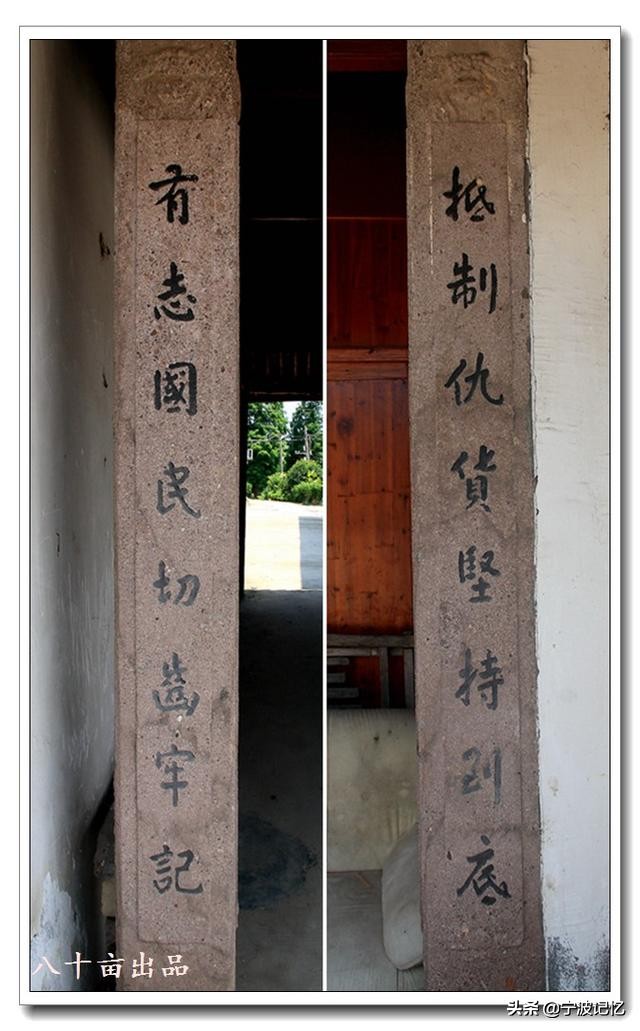 抵制仇貨堅持到底
有志國民切齒牢記
八十亩出品
头条 @宁波记忆